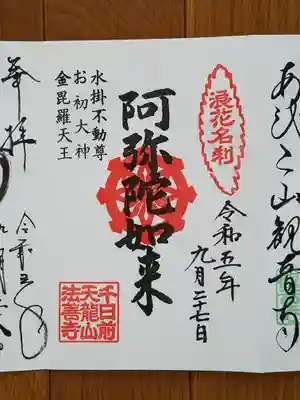 あびこ山観音寺
浪花名刹
令和五年
九月二七日
阿弥陀如来
水掛不動尊
お初大神
金毘羅天王
千日前
天龍山
法善寺
奉拝
令和五年